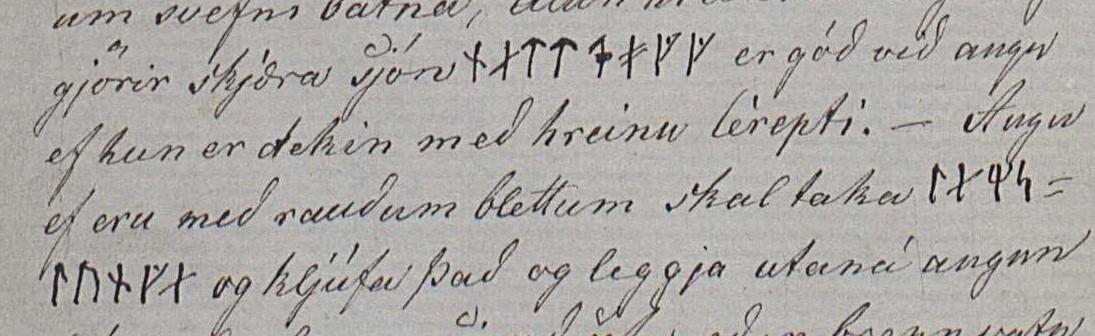 um svefni batna,
gjörir skjæra sjón ᚾᛆᛏᛏᛑᚯᚵᚵ er góð við augu
ef hun er tekin með hreinu lérepti. – Augu
ef eru með rauðum blettum skal taka ᛚᛆᛘᛋ=
ᛚᚢᚾᚵᛆ og kljúfa það og leggja utaná augun